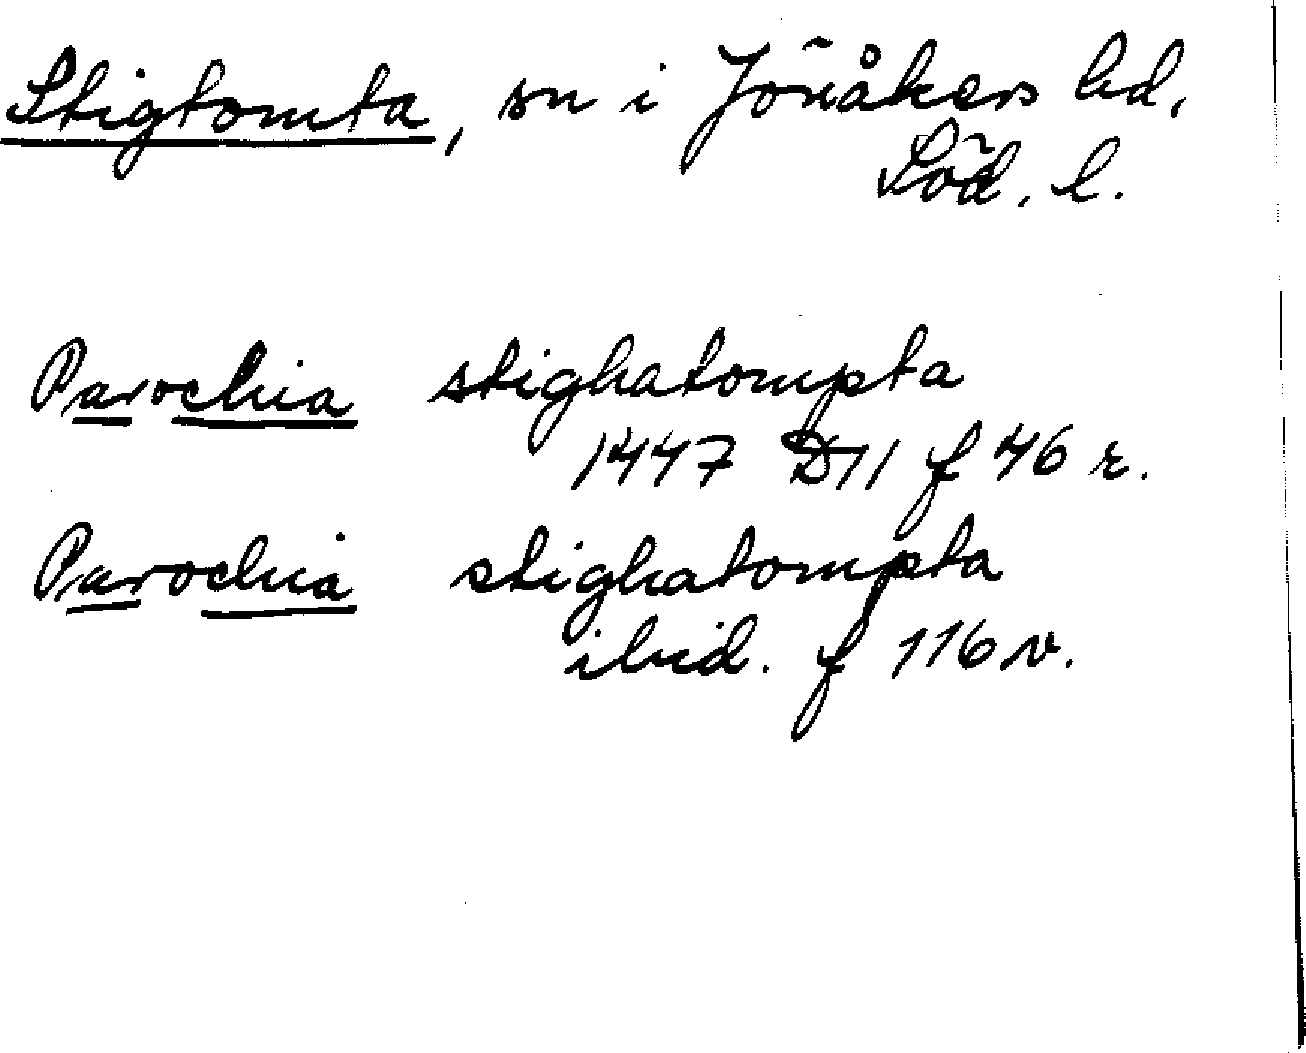 Stigtomta, sn i Jönåkers hd,
Söd. l.
Parochia stighatompta
1447 D11 f 46 r.
Parochia stighatompta
ibid. f 116 v.